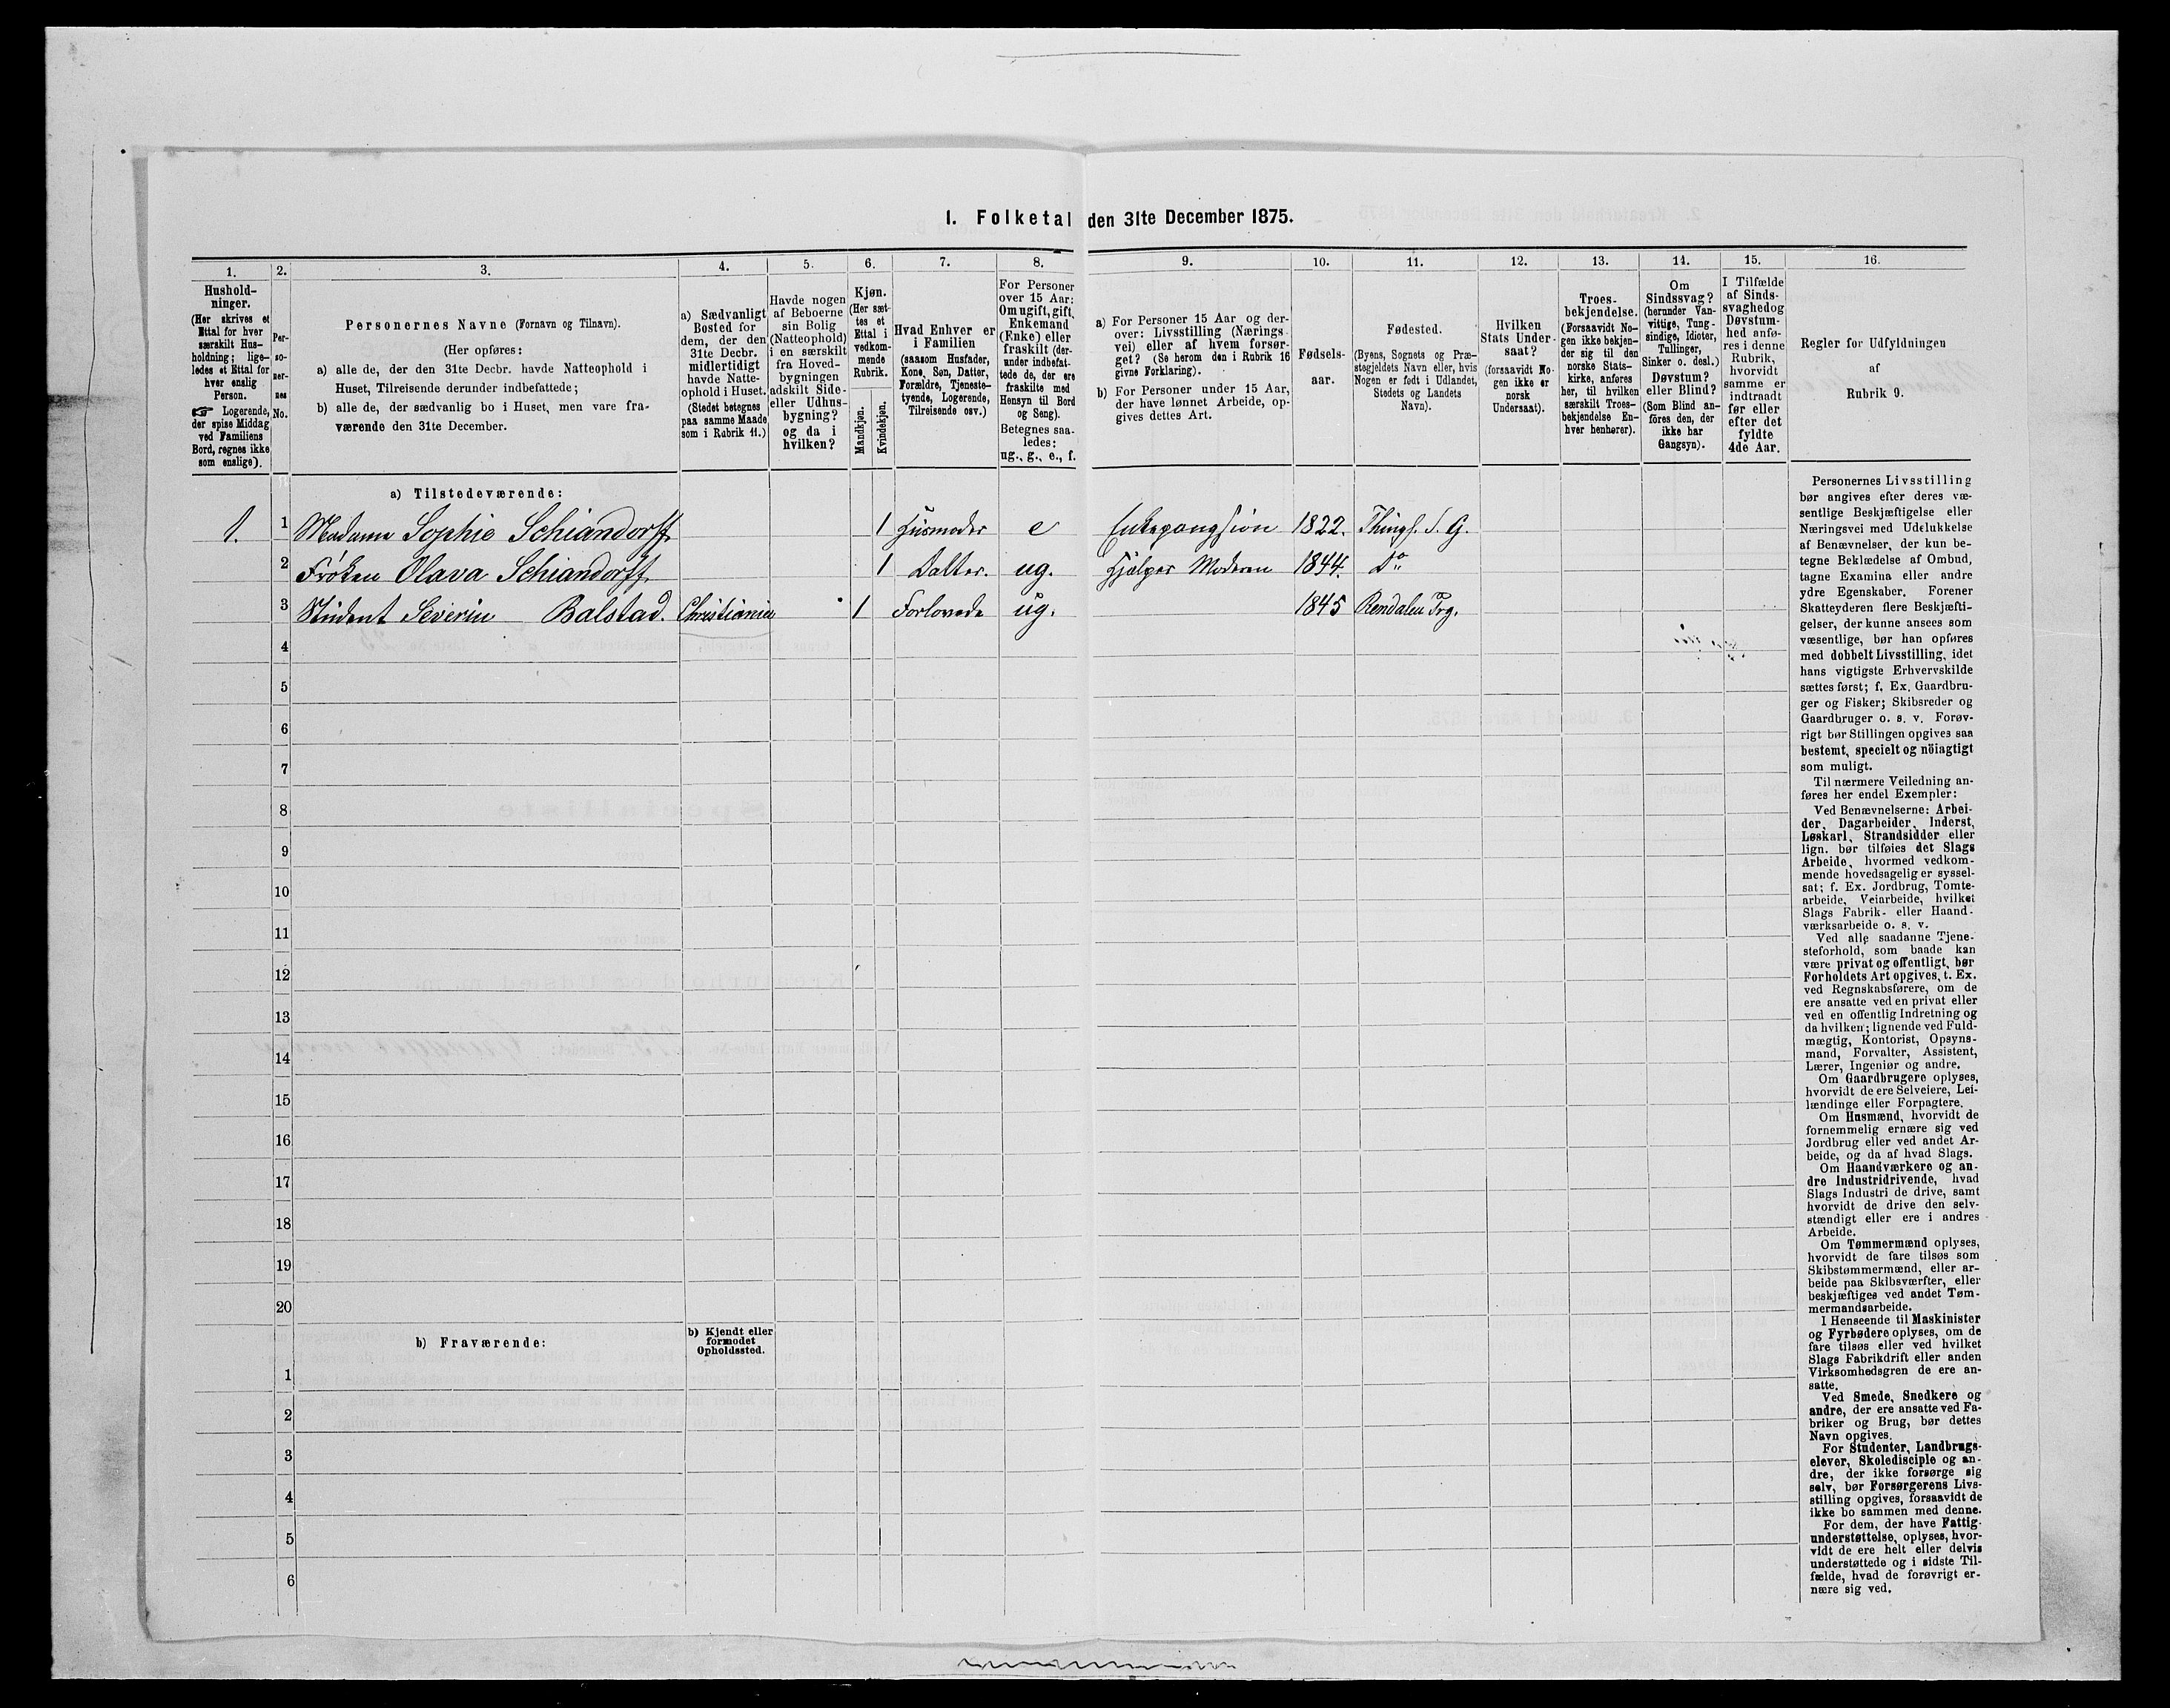 1. Folketal den 31te December 1875.
1. 2. 3. 4. 5. 6. 7. 8. 9. 10. 11. 12. 13. 14. 15. 16.
Hushold-
ninger.
(Her skrives et
Ettal for hver
særskilt Hus-
holdning; lige-
ledes et Ettal for
hver enslig
Person.
☞ Logerende,
der spise Middag
ved Familiens
Bord, regnes ikke
som enslige).
Per-
so-
ner-
nes
No.
Personernes Navne (Fornavn og Tilnavn).
(Her opføres:
a) alle de, der den 31te Decbr. havde Natteophold i
Huset, Tilreisende derunder indbefattede;
b) alle de, der sædvanlig bo i Huset, men vare fra-
værende den 31te December.
a) Sædvanligt
Bosted for
dem, der den
31te Decbr.
midlertidigt
havde Natte-
ophold i Huset.
(Stedet betegnes
paa samme Maade
som i Rubrik 11.)
Havde nogen
af Beboerne
sin Bolig
(Natteophold)
i en særskilt
fra Hoved-
bygningen
adskilt Side-
eller Udhus-
bygning?
og da i
hvilken?
Kjøn.
(Her sæt-
tes et
Ettal i
vedkom-
mende
Rubrik.
Mandkjøn.
Kvindekjøn.
Hvad Enhver er
i Familien
(saasom Husfader,
Kone, Søn, Datter,
Forældre, Tjeneste-
tyende, Logerende,
Tilreisende osv.)
For Personer
over 15 Aar:
Om ugift, gift,
Enkemand
(Enke) eller
fraskilt (der-
under indbefat-
tede de, der ere
fraskilte med
Hensyn til Bord
og Seng).
Betegnes saa-
ledes:
ug., g., e., f.
a) For Personer 15 Aar og der-
over: Livsstilling (Nærings-
vei) eller af hvem forsør-
get? (Se herom den i Rubrik 16
givne Forklaring).
b) For Personer under 15 Aar,
der have lønnet Arbeide, op-
gives dettes Art.
Fødsels-
aar.
Fødested.
(Byens, Sognets og Præ-
stegjeldets Navn eller, hvis
Nogen er født i Udlandet,
Stedets og Landets
Navn).
Hvilken
Stats Under-
saat?
(forsaavidt No-
gen ikke er
norsk
Undersaat).
Troes-
bekjendelse.
(Forsaavidt No-
gen ikke bekjen-
der sig til den
norske Stats-
kirke, anføres
her, til hvilken
særskilt Troes-
bekjendelse En-
hver henhører).
Om
Sindssvag?
(herunder Van-
vittige, Tung-
sindige, Idioter,
Tullinger,
Sinker o. desl.)
Døvstum?
eller Blind?
(Som Blind an-
føres den, der
ikke har
Gangsyn).
I Tilfælde
af Sinds-
svaghed og
Døvstum-
hed anfø-
res i denne
Rubrik,
hvorvidt
samme er
indtraadt
før eller
efter det
fyldte
4de Aar.
Regler for Udfyldningen
af
Rubrik 9.
a) Tilstedeværende:
1. 1 Madame Sophie Schiandorff 1 Husmoder e Enkepangsion 1822. Thingf. S. G.
2 Frøken Olava Schiandorff. 1 Datter. ug. Hjælper Moderen 1844. Do
3 Student Severin Balstad. Christiania 1 Forlovede ug. 1845 Rendalen Prg.
4
5
6
7
8
9
10
11
12
13
14
15
16
17
18
19
20
b) Fraværende:
b) Kjendt eller
formodet
Opholdssted.
1
2
3
4
5
6
Personernes Livsstilling
bør angives efter deres væ-
sentlige Beskjæftigelse eller
Næringsvei med Udelukkelse
af Benævnelser, der kun be-
tegne Beklædelse af Ombud,
tagne Examina eller andre
ydre Egenskaber. Forener
Skatteyderen flere Beskjæfti-
gelser, der kunne ansees som
væsentlige, bør han opføres
med dobbelt Livsstilling, idet
hans vigtigste Erhvervskilde
sættes først; f. Ex. Gaardbru-
ger og Fisker; Skibsreder og
Gaardbruger o. s. v. Forøv-
rigt bør Stillingen opgives saa
bestemt, specielt og nöiagtigt
som muligt.
Til nærmere Veiledning an-
føres her endel Exempler:
Ved Benævnelserne: Arbei-
der, Dagarbeider, Inderst,
Løskarl, Strandsidder eller
lign. bør tilføies det Slags
Arbeide, hvormed vedkom-
mende hovedsagelig er syssel-
sat; f. Ex. Jordbrug, Tomte-
arbeide, Veiarbeide, hvilket
Slags Fabrik- eller Haand-
værksarbeide o. s. v.
Ved alle saadanne Tjene-
steforhold, som baade kan
være privat og offentligt, bør
Forholdets Art opgives, t. Ex.
ved Regnskabsførere, om de
ere ansatte ved en privat eller
ved en offentlig Indretning og
da hvilken; lignende ved Fuld-
mægtig, Kontorist, Opsyns-
mand, Forvalter, Assistent,
Lærer, Ingeniør og andre.
Om Gaardbrugere oplyses,
hvorvidt de ere Selveiere, Lei-
lændinge eller Forpagtere.
Om Husmænd, hvorvidt de
fornemmelig ernære sig ved
Jordbrug eller ved andet Ar-
beide, og da af hvad Slags.
Om Haandværkere og an-
dre Industridrivende, hvad
Slags Industri de drive, samt
hvorvidt de drive den selv-
stændigt eller ere i andres
Arbeide.
Om Tømmermænd oplyses,
hvorvidt de fare tilsøs som
Skibstømmermænd, eller ar-
beide paa Skibsværfter, eller
beskjæftiges ved andet Tøm-
mermandsarbeide.
I Henseende til Maskinister
og Fyrbødere oplyses, om de
fare tilsøs eller ved hvilket
Slags Fabrikdrift eller anden
Virksomhedsgren de ere an-
satte.
Ved Smede, Snedkere og
andre, der ere ansatte ved Fa-
briker og Brug, bør dettes
Navn opgives.
For Studenter, Landbrugs-
elever, Skoledisciple og an-
dre, der ikke forsørge sig
selv, bør Forsørgerens Livs-
stilling opgives, forsaavidt de
ikke bo sammen med denne.
For dem, der have Fattig-
understøttelse, oplyses, hvor-
vidt de ere helt eller delvis
understøttede og i sidste Til-
fælde, hvad de forøvrigt er-
nære sig ved.